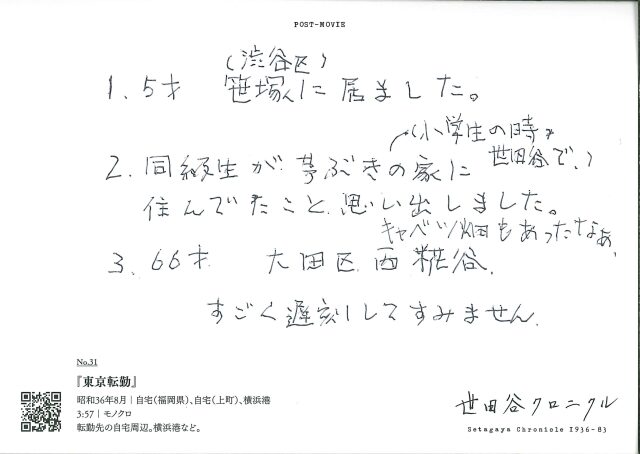 POST-MOVIE
(渋谷区)
1. 5才 笹塚に居ました。
(小学生の時、
世田谷で。)
2. 同級生が茅ぶきの家に
住んでたこと思い出しました。
キャベツ畑もあったなぁ、
3. 66才. 大田区西糀谷.
すごく遅刻してすみません.
No.31
『東京転勤』
昭和36年8月|自宅(福岡県)、自宅(上町)、横浜港
3:57|モノクロ
転勤先の自宅周辺。横浜港など。
世田谷クロニクル
Setagaya Chronicle 1936-83